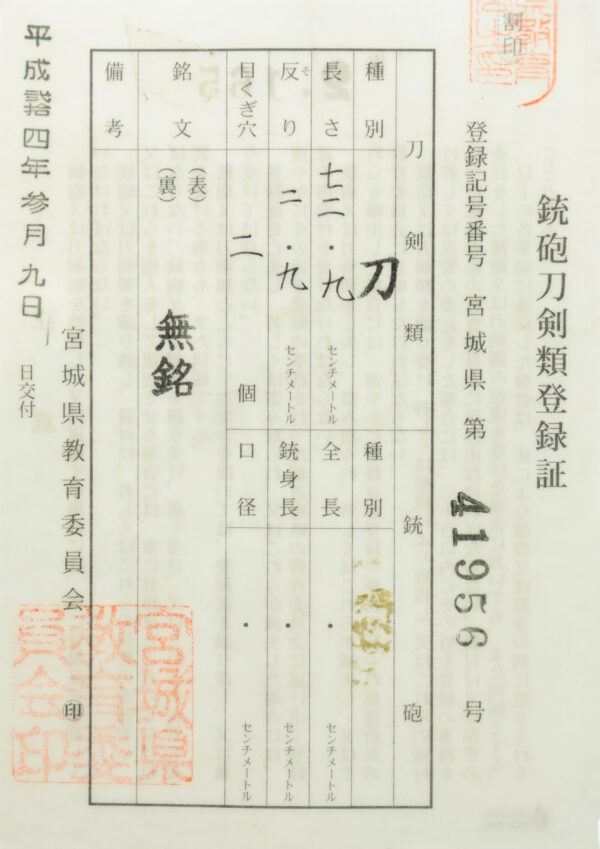 銃砲刀剣類登録証
割印
登録記号番号 宮城県第 41956 号
刀剣類
種別 刀
長さ 七二・九 センチメートル
反り 二・九 センチメートル
そ
目くぎ穴 二 個
銘文 (表) (裏) 無銘
備考
銃砲
種別
全長 ・ センチメートル
銃身長 ・ センチメートル
口径 ・ センチメートル
平成弐拾四年参月九日 日交付
宮城県教育委員会 ㊞
宮城県教育委員会印